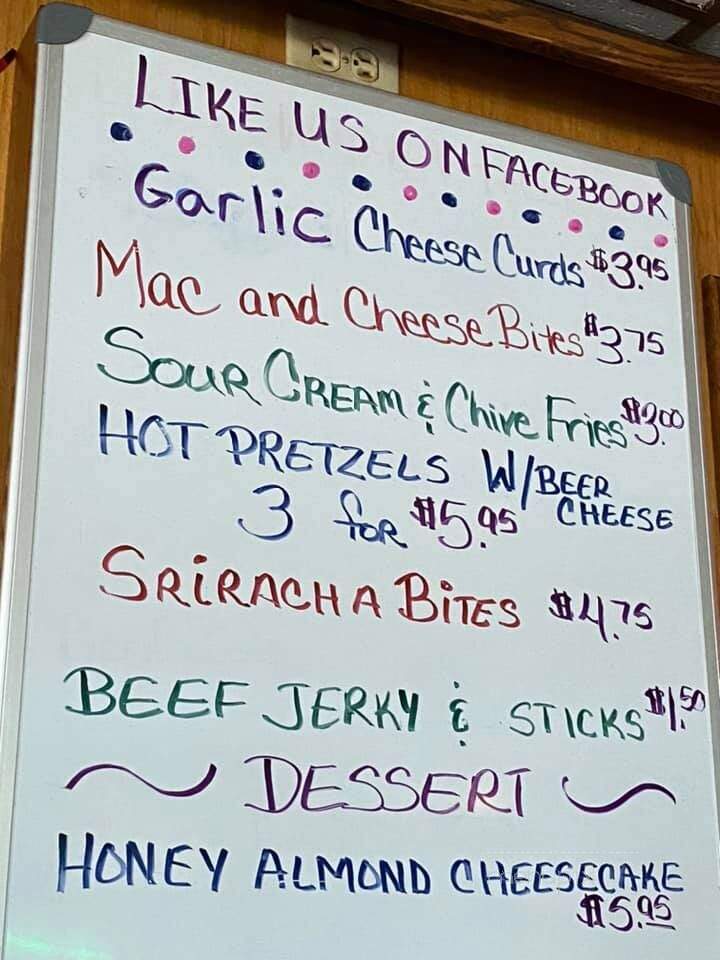 LIKE US ON FACEBOOK
Garlic Cheese Curds $3.95
Mac and Cheese Bites $3.75
SOUR CREAM & Chive Fries $3.00
HOT PRETZELS W/BEER CHEESE
3 for $5.95
SRIRACHA BITES $4.75
BEEF JERKY & STICKS $1.50
~ DESSERT ~
HONEY ALMOND CHEESECAKE
$5.95